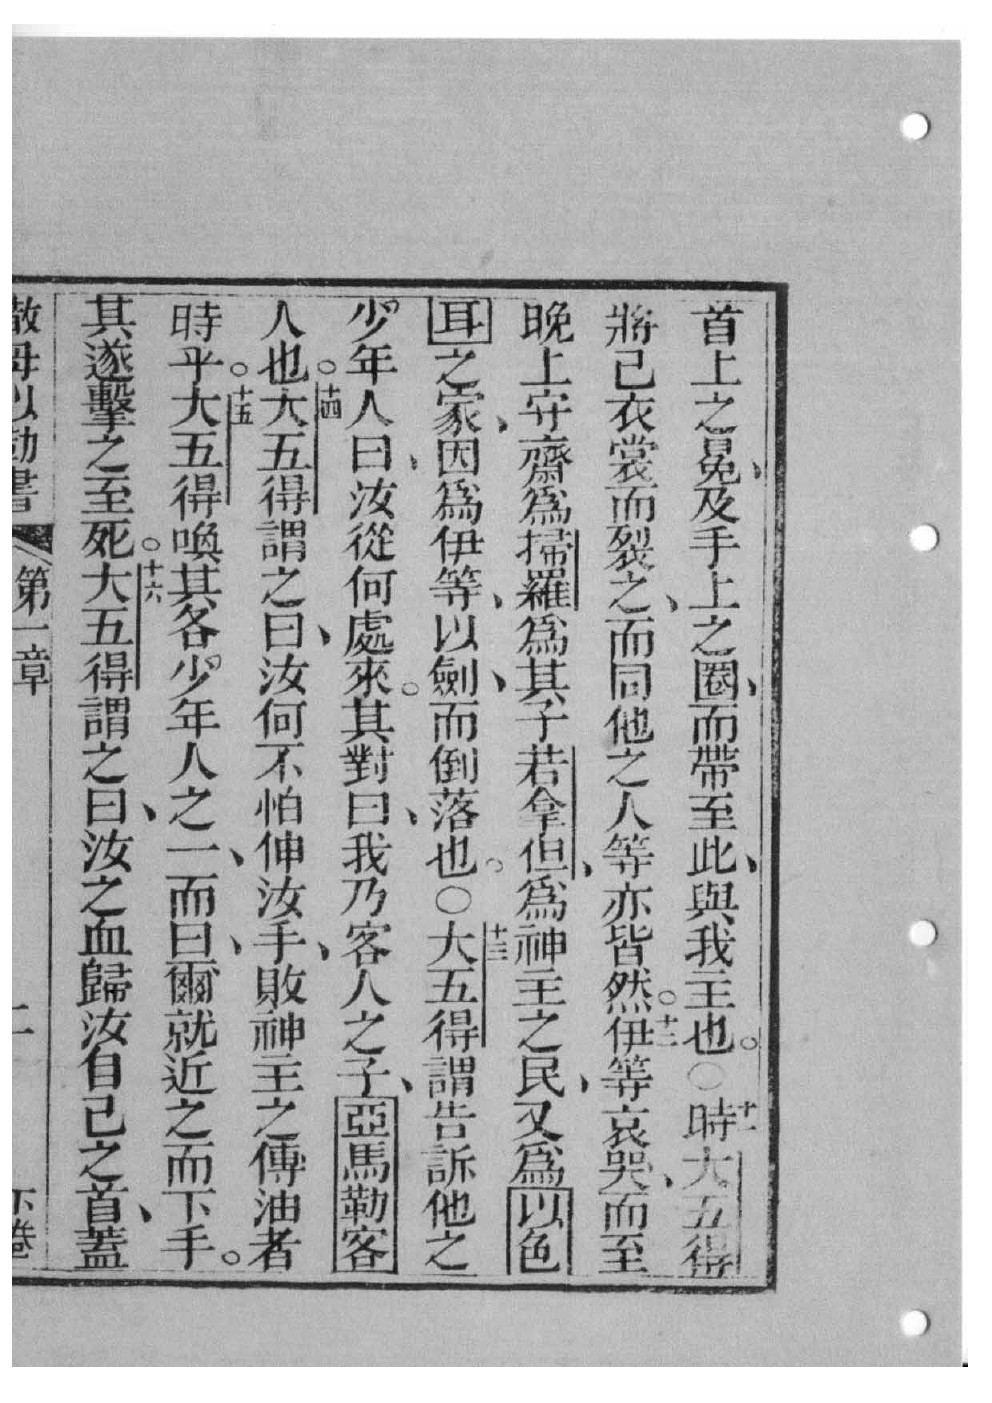 首上之冕、及手上之圈、而帶至此、與我主也。○十一時大五得
將己衣裳而裂之、而同他之人等亦皆然。十二伊等哀哭、而至
晚上守齋爲掃羅爲其子若拿但、爲神主之民、又爲以色
耳之家、因爲伊等、以劍、而倒落也。○十三大五得謂告訴他之
少年人曰、汝從何處來。其對曰、我乃客人之子、亞馬勒客
人也。十四大五得謂之曰、汝何不怕伸汝手、敗神主之傅油者
時乎。十五大五得喚其各少年人之一、而曰、爾就近之而下手。
其遂擊之至死。十六大五得謂之曰、汝之血歸汝自己之首、蓋
撒母以勒書 第一章 二 下卷